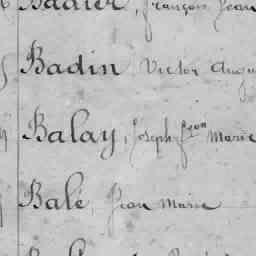 Badier, François Jean
Badin Victor Augu
Balay, Joseph Fçon Marie
Balé, Jean Marie